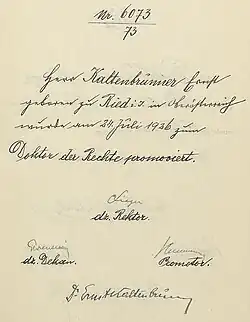 Nr. 6073
73
Herr Kaltenbrunner Ernst
geboren zu Ried i. I. in Oberösterreich
wurde am 24. Juli 1926 zum
Doktor der Rechte promoviert.
dz. Rektor.
dz. Dekan. Promotor.
Dr Ernst Kaltenbrunner